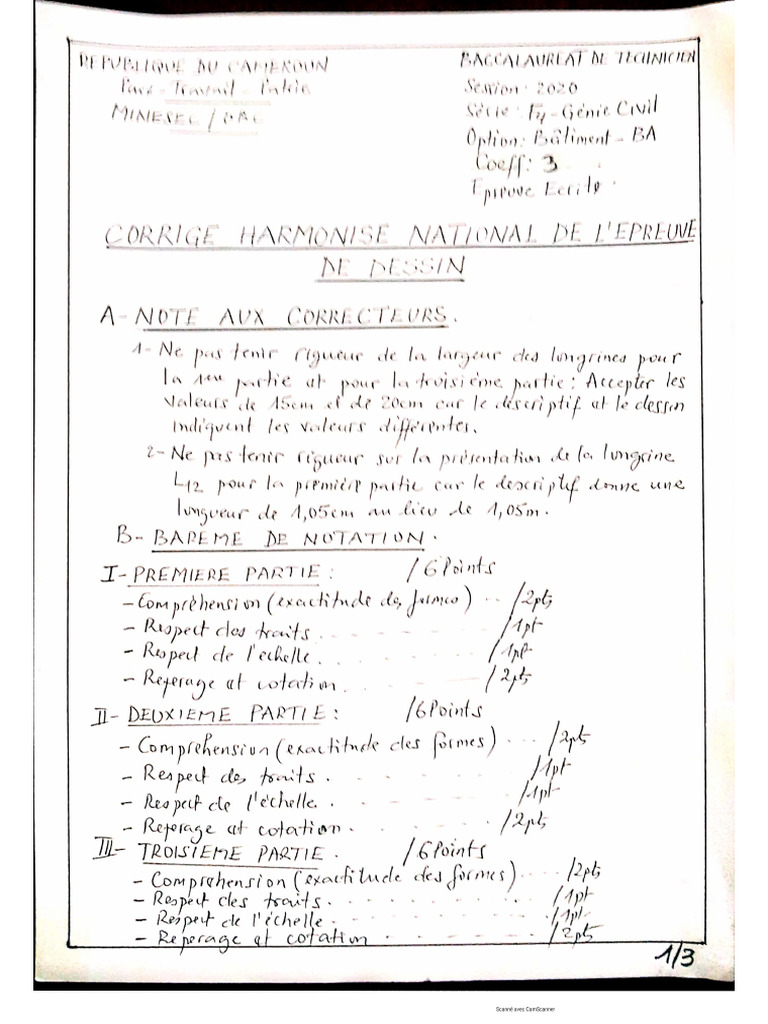 REPUBLIQUE DU CAMEROUN
Paix - Travail - Patrie
MINESEC / OBC
BACCALAUREAT DE TECHNICIEN
Session : 2020
Série : F4 - Génie Civil
Option : Bâtiment - BA
Coeff : 3
Epreuve Ecrite.
CORRIGE HARMONISE NATIONAL DE L'EPREUVE
DE DESSIN
A- NOTE AUX CORRECTEURS.
1- Ne pas tenir rigueur de la largeur des longrines pour
la 1ere partie et pour la troisième partie : Accepter les
valeurs de 15cm et de 20cm car le descriptif et le dessin
indiquent les valeurs différentes.
2- Ne pas tenir rigueur sur la présentation de la longrine
L12 pour la première partie car le descriptif donne une
longueur de 1,05cm au lieu de 1,05m.
B- BAREME DE NOTATION.
I- PREMIERE PARTIE : /6Points
- Compréhension (exactitude des formes) .. /2pts
- Respect des traits. /1pt
- Respect de l'échelle. /1pt
- Reperage et cotation. /2pts
II- DEUXIEME PARTIE : /6Points
- Compréhension (exactitude des formes) ... /2pts
- Respect des traits. /1pt
- Respect de l'échelle. /1pt
- Reperage et cotation. /2pts
III- TROISIEME PARTIE. /6Points
- Compréhension (exactitude des formes) ... /2pts
- Respect des traits. /1pt
- Respect de l'échelle. /1pt
- Reperage et cotation /2pts
1/3
Scanné avec CamScanner